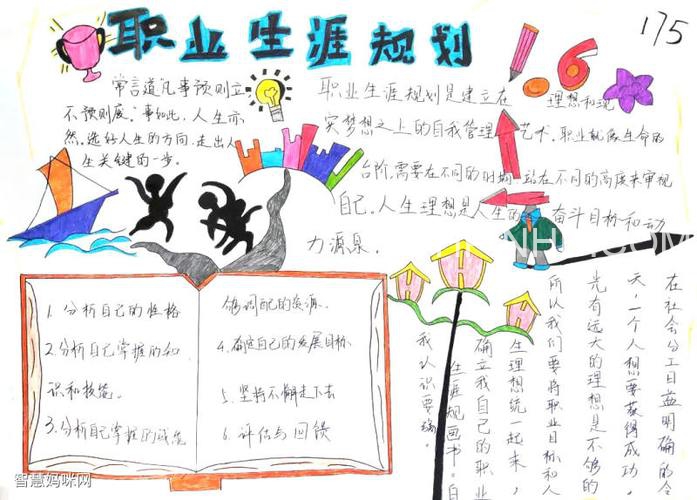 职业生涯规划
175
常言道"凡事预则立
不预则废。"事如此，人生亦
然，选好人生的方向，走出人
生关键的一步。
职业生涯规划是建立在 理想和现
实梦想之上的自我管理 艺术。职业就像生命的
台阶，需要在不同的时期，站在不同的高度来审视
自己。人生理想是人生的 奋斗目标和动
力源泉。
1. 分析自己的性格
2. 分析自己掌握的知
识和技能。
3. 分析自己掌握的或能
够调配的资源。
4. 确定自己的发展目标
5. 坚持不懈走下去
6. 评估与回馈
在社会分工日益明确的今
天，一个人想要获得成功
光有远大的理想是不够的
所以我们要将职业目标和人
生理想统一起来，
确立我自己的职业
生涯规画书，自
我认识要端。
智慧妈咪网